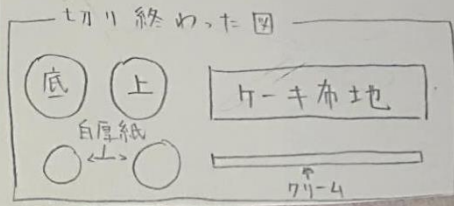 切り終わった図
底
上
ケーキ布地
白厚紙
クリーム